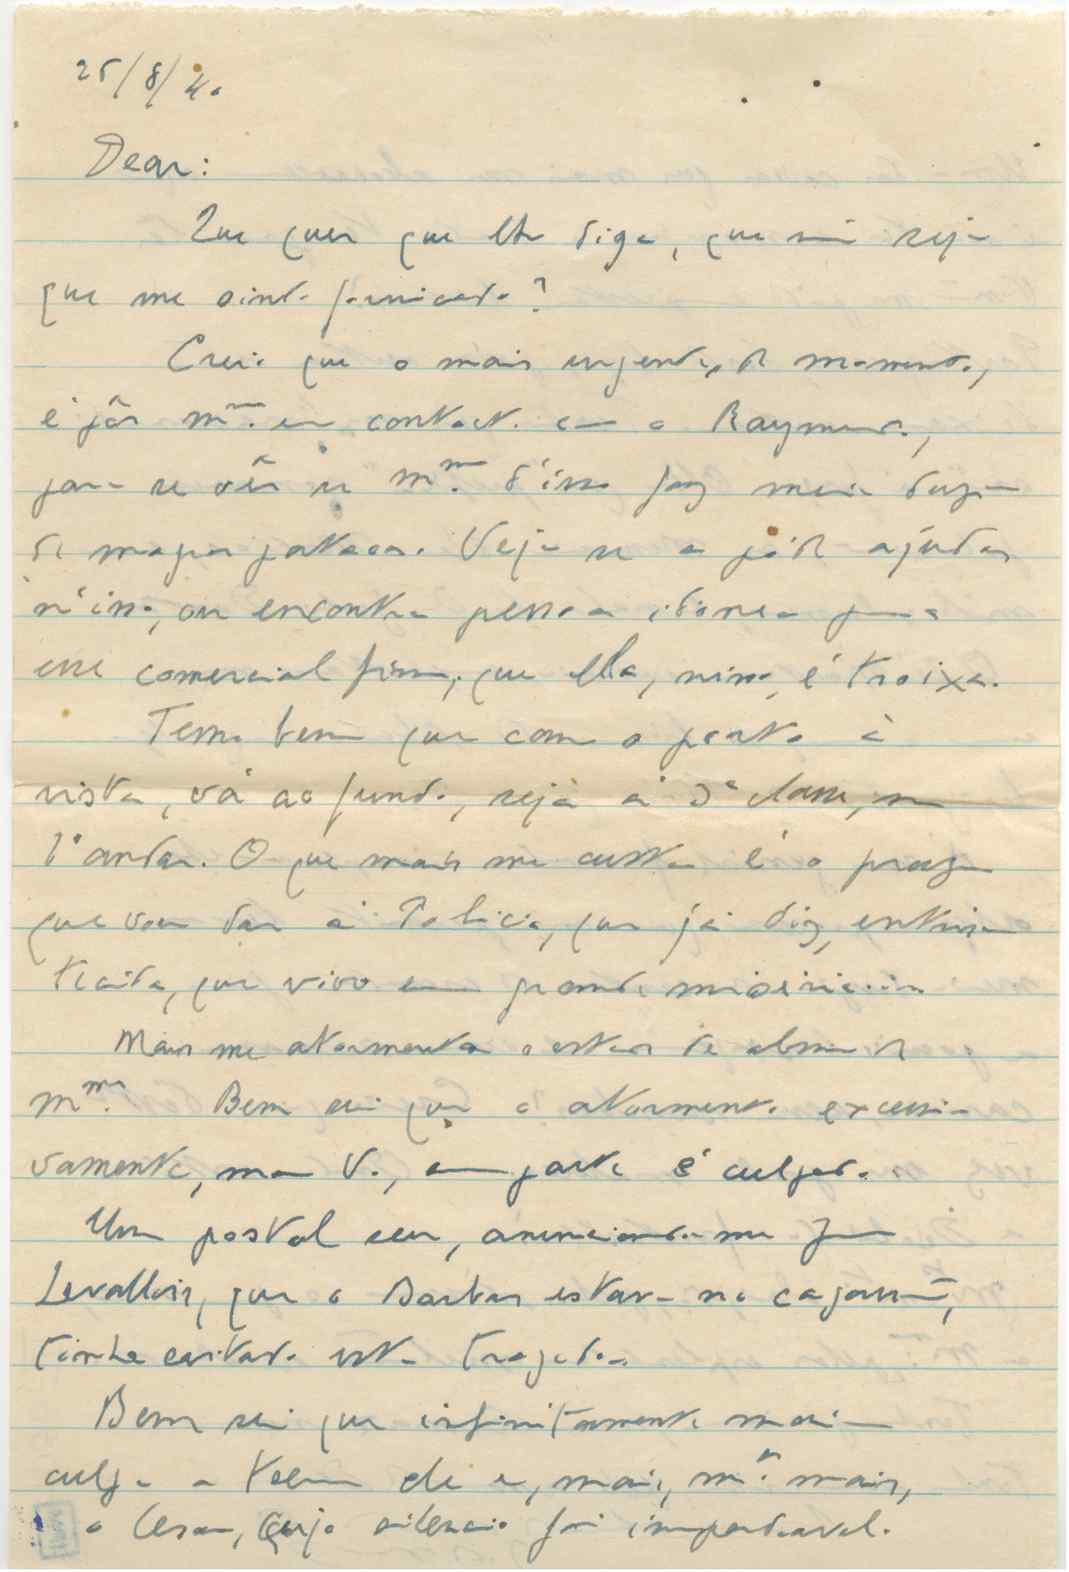 25/8/40
Dear:
Que quer que lhe diga, que não seja
que me sinto fornicado?
Creio que o mais urgente, de momento,
é pôr Mme. em contacto com o Raymundo,
para se vêr se Mme. d'isso faz meia duzia
de magras patacas. Veja se a póde ajudar
n'isso, ou encontra pessoa idonea para
esse comercial fim, que ella, nisso, é troixa.
Temo bem que com o porto á
vista, vá ao fundo, seja á 3ª classe, no
1º andar. O que mais me custa é o prazer
que vou dar á Policia, que já diz,
que vivo em grande
Mais me atormenta o estado de alma de
Mme. Bem sei que a atormento excessi-
vamente, mas V., em parte é culpado.
Um postal seu, anunciando-me para
Levallois, que o Barbas estava no
tinha evitado esta tragedia.
Bem sei que infinitamente mais
culpa a tem ele e, mais, mto. mais,
o Cesar, cujo silencio foi imperdoavel.